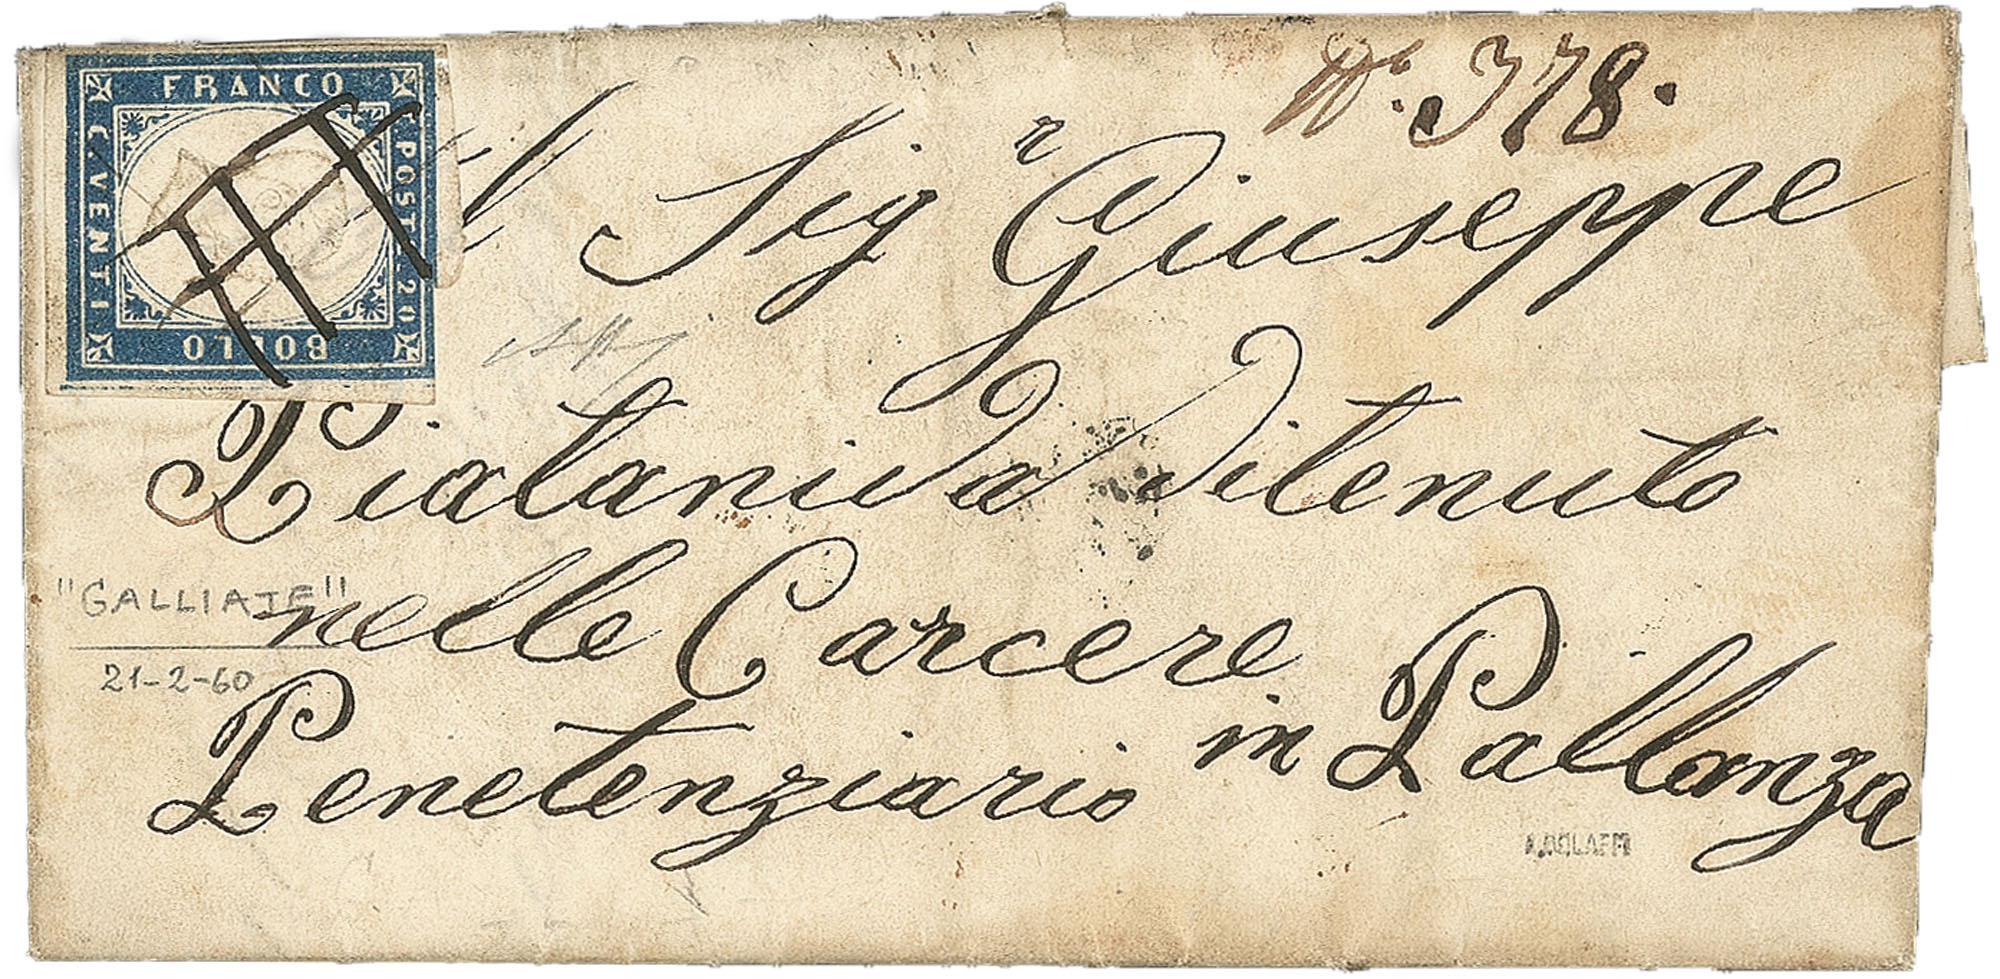 FRANCO
C. VENTI
POST. 20
BOLLO
N.° 378.
Al Sig.r Giuseppe
Piatanida ditenuto
nelle Carcere
Penetenziario in Pallanza
"GALLIATE"
21-2-60
A.BOLAFFI